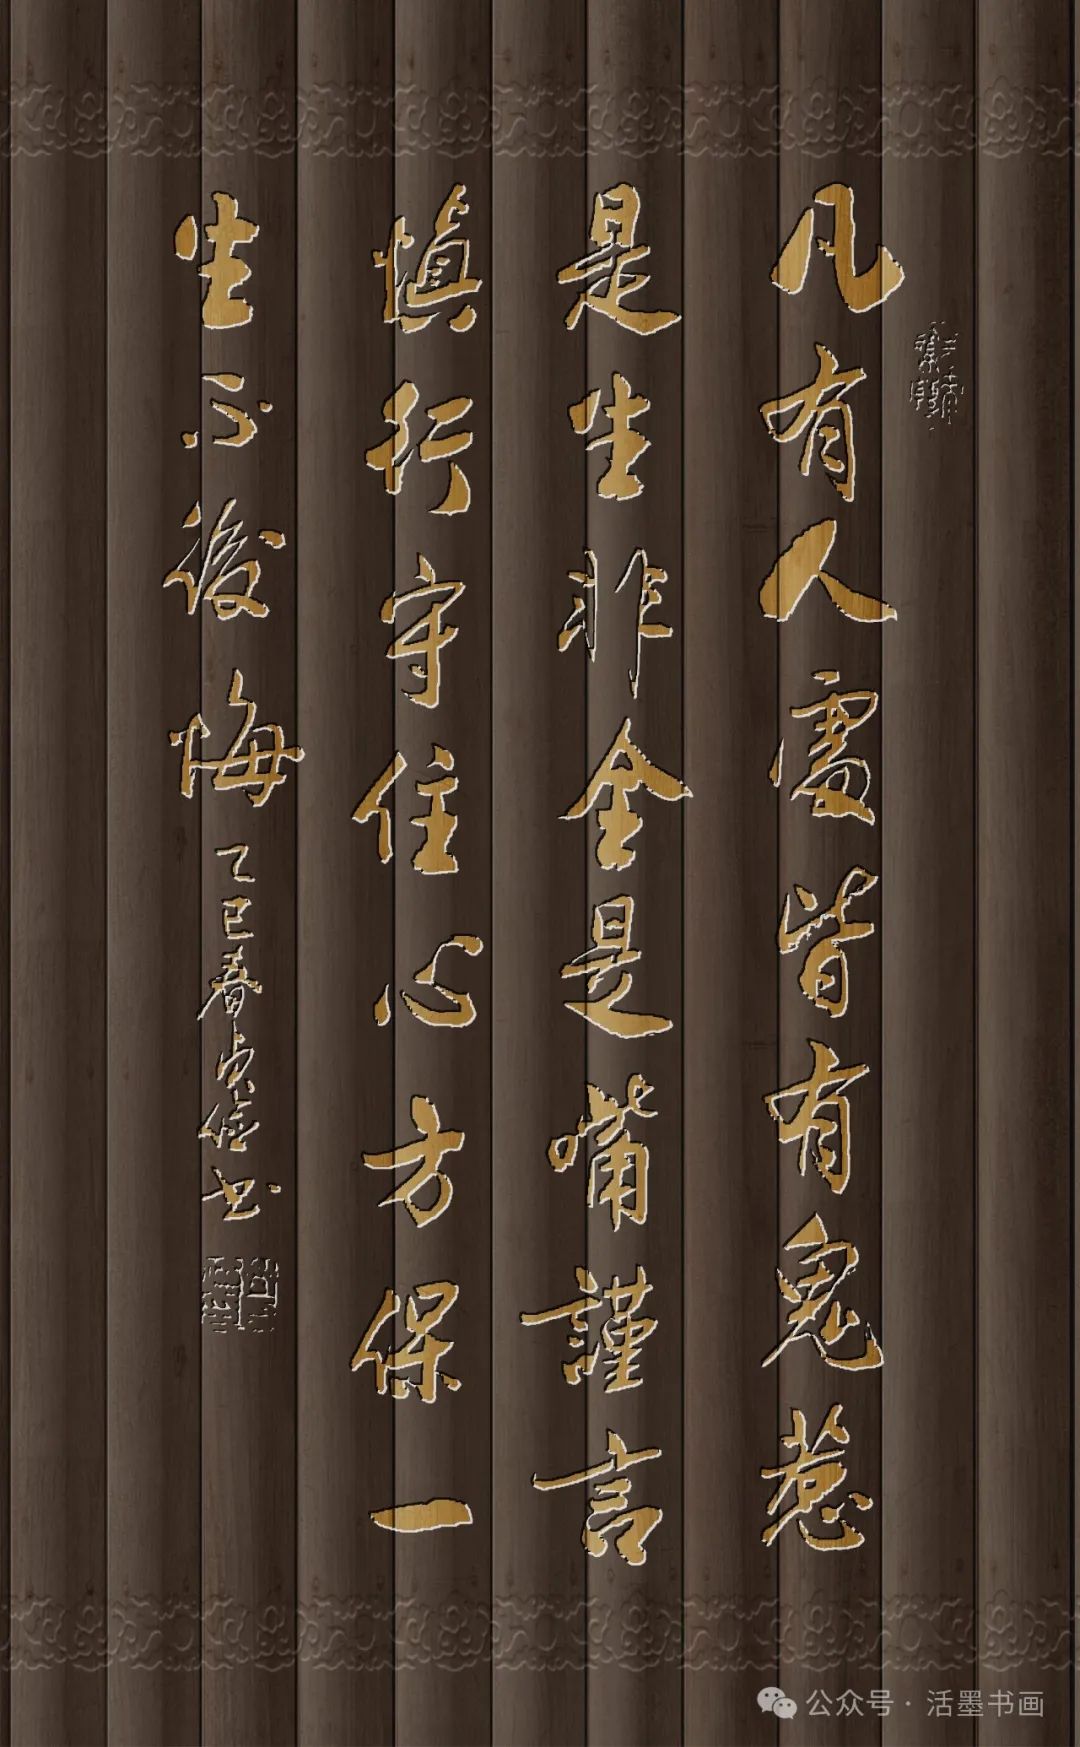 凡有人處皆有鬼惹
是生非全是嘴謹言
慎行守住心方保一
生不後悔
乙巳春 書
公众号·活墨书画